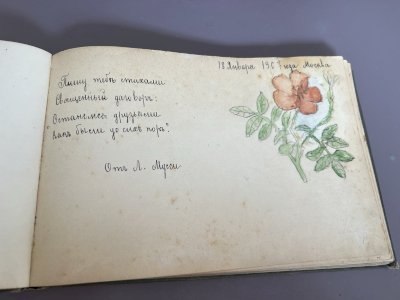 18 Января 190 года Москва
Пишу тебѣ стихами
Священный договоръ:
Останемся друзьями
"Какъ были до сихъ поръ".
Отъ Л.